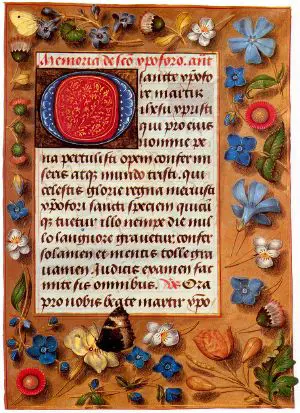 Memoria de sco xpoforo. ant
Sancte xpofo
re martir
ihesu xpristi
qui pro eius
nomine pe
na pertulisti opem confer mi
seris atq; mundo tristi. qui
celestis glorie regna meruisti
xpofori sancti speciem quicū
q; tuetur illo nempe die nul
lo languore gravetur. confer
solamen et mentis tolle gra
vamen. Iudicis examen fac
mite sis omnibus. Vs Ora
pro nobis beate martir xpo